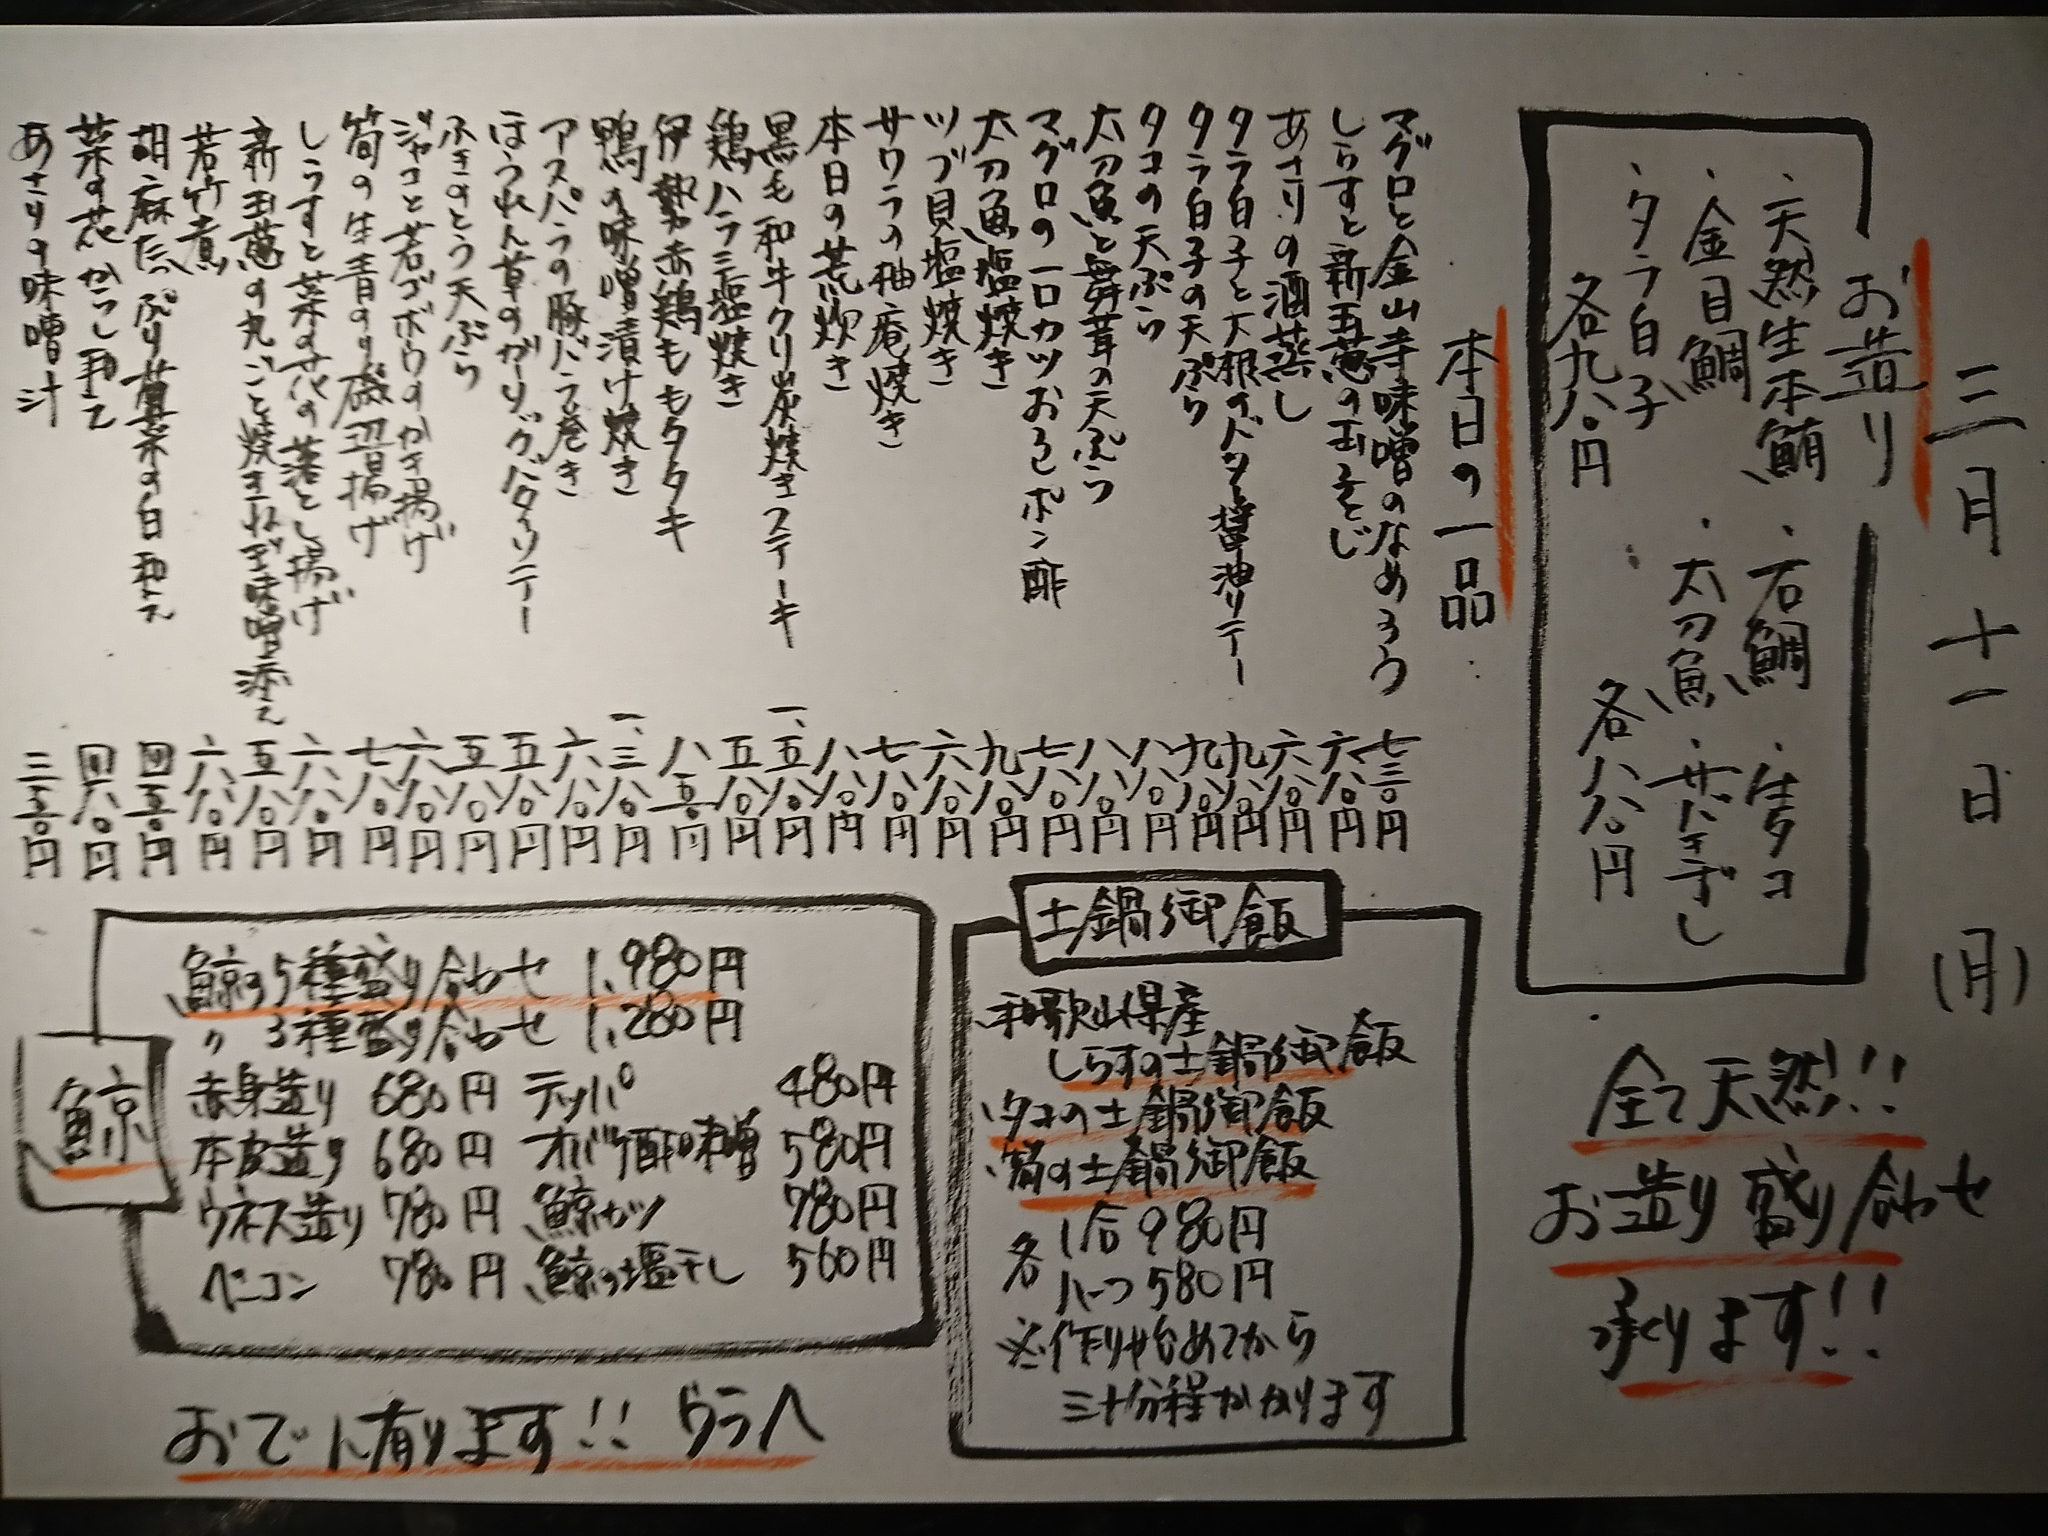 三月十一日(月)
お造り
・天然生本鮪 ・石鯛 ・生タコ
・金目鯛 ・太刀魚 ・サバきずし
・タラ白子
各九八〇円 各八八〇円
全て天然!!
お造り盛り合わせ
承ります!!
本日の一品
マグロと金山寺味噌のなめろう 七三〇円
しらすと新玉葱の玉子とじ 六八〇円
あさりの酒蒸し 六八〇円
タラ白子と大根のバター醤油ソテー 九八〇円
タラ白子の天ぷら 九八〇円
タコの天ぷら 八八〇円
太刀魚と舞茸の天ぷら 八八〇円
マグロの一口カツおろしポン酢 七八〇円
太刀魚塩焼き 九八〇円
ツブ貝塩焼き 六八〇円
サワラの柚庵焼き 七八〇円
本日の荒炊き 八八〇円
黒毛和牛クリ炭焼きステーキ 一、五八〇円
鶏ハラミ塩焼き 五八〇円
伊勢赤鶏ももタタキ 八五〇円
鴨の味噌漬け焼き 一、三八〇円
アスパラの豚バラ巻き 六八〇円
ほうれん草のガーリックバターソテー 五八〇円
ふきのとう天ぷら 五八〇円
ジャコと若ゴボウのかき揚げ 六八〇円
筍の生青のり磯辺揚げ 七八〇円
しらすと菜の花の落とし揚げ 六八〇円
新玉葱の丸ごと焼きねぎ味噌添え 五八〇円
若竹煮 六八〇円
胡麻たっぷり蕈菜の白和え 四五〇円
菜の花からし和え 四八〇円
あさりの味噌汁 三五〇円
土鍋御飯
和歌山県産
しらすの土鍋御飯
タコの土鍋御飯
筍の土鍋御飯
各 1合980円
ハーフ580円
※作り始めてから
三十分程かかります
鯨
鯨の5種盛り合わせ 1,980円
〃 3種盛り合わせ 1,280円
赤身造り 680円 テッパ 480円
本皮造り 680円 オバケ酢味噌 580円
ウネス造り 780円 鯨カツ 780円
ベーコン 780円 鯨の塩干し 560円
おでん有ります!! ウラへ